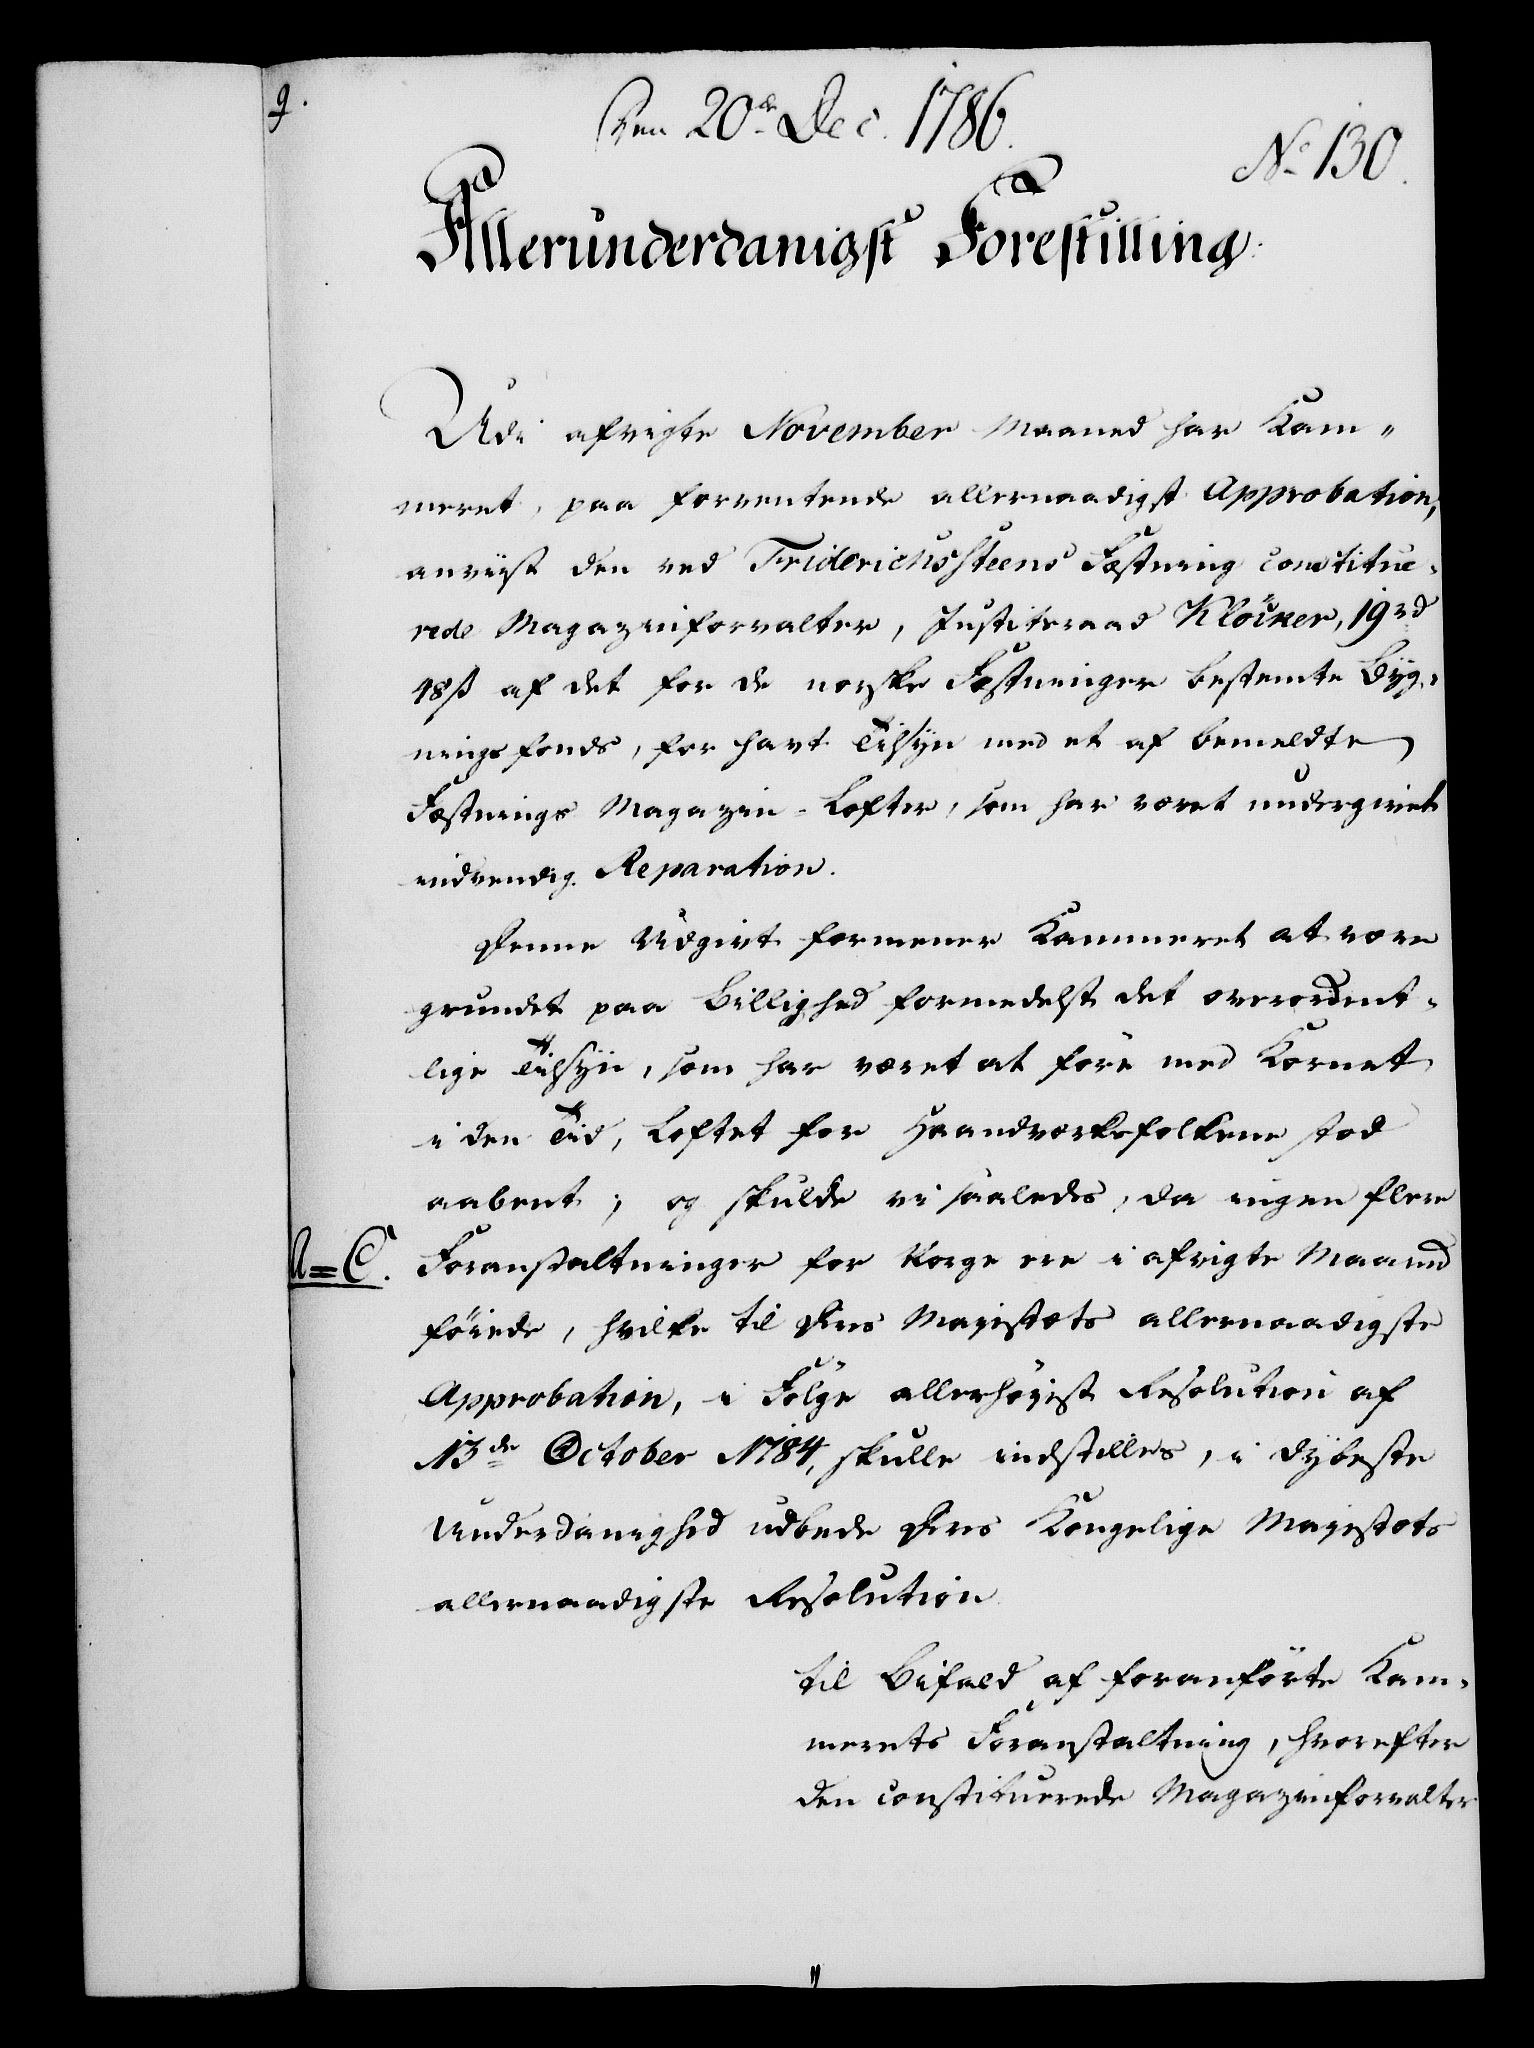 9.
Den 20de Dec. 1786.
No 130.
Allerunderdanigst Forestilling.
Udi afvigte November Maaned har Kam-
meret, paa forventende allernaadigst Approbation,
anviist den ved Friderichssteens Fæstning constitue-
rede Magazinforvalter, Justitsraad Klöcker, 19 rd
48 ß af det for de norske Fæstninger bestemte Byg-
ningsfonds, for havt Tilsÿn med et af bemeldte
Fæstnings Magazin-Lofter, som har været undergivet
indvendig Reparation.
Denne Udgivt formener Kammeret at være
grundet paa Billighed formedelst det overordent-
lige Tilsÿn, som har været at före med Kornet
i den Tid, Loftet for Haandværksfolkene stod
aabent; og skulde vi saaledes, da ingen flere
A=C.
Foranstaltninger for Norge ere i afvigte Maaned
föiede, hvilke til Deres Majestæts allernaadigste
Approbation, i Fölge allerhöjst Resolution af
13de October 1784, skulle indstilles, i dÿbeste
Underdanighed udbede Deres Kongelige Majestæts
allernaadigste Resolution
til Bifald af foranförte Kam-
merets Foranstaltning, hvorefter
den constituerede Magazinforvalter